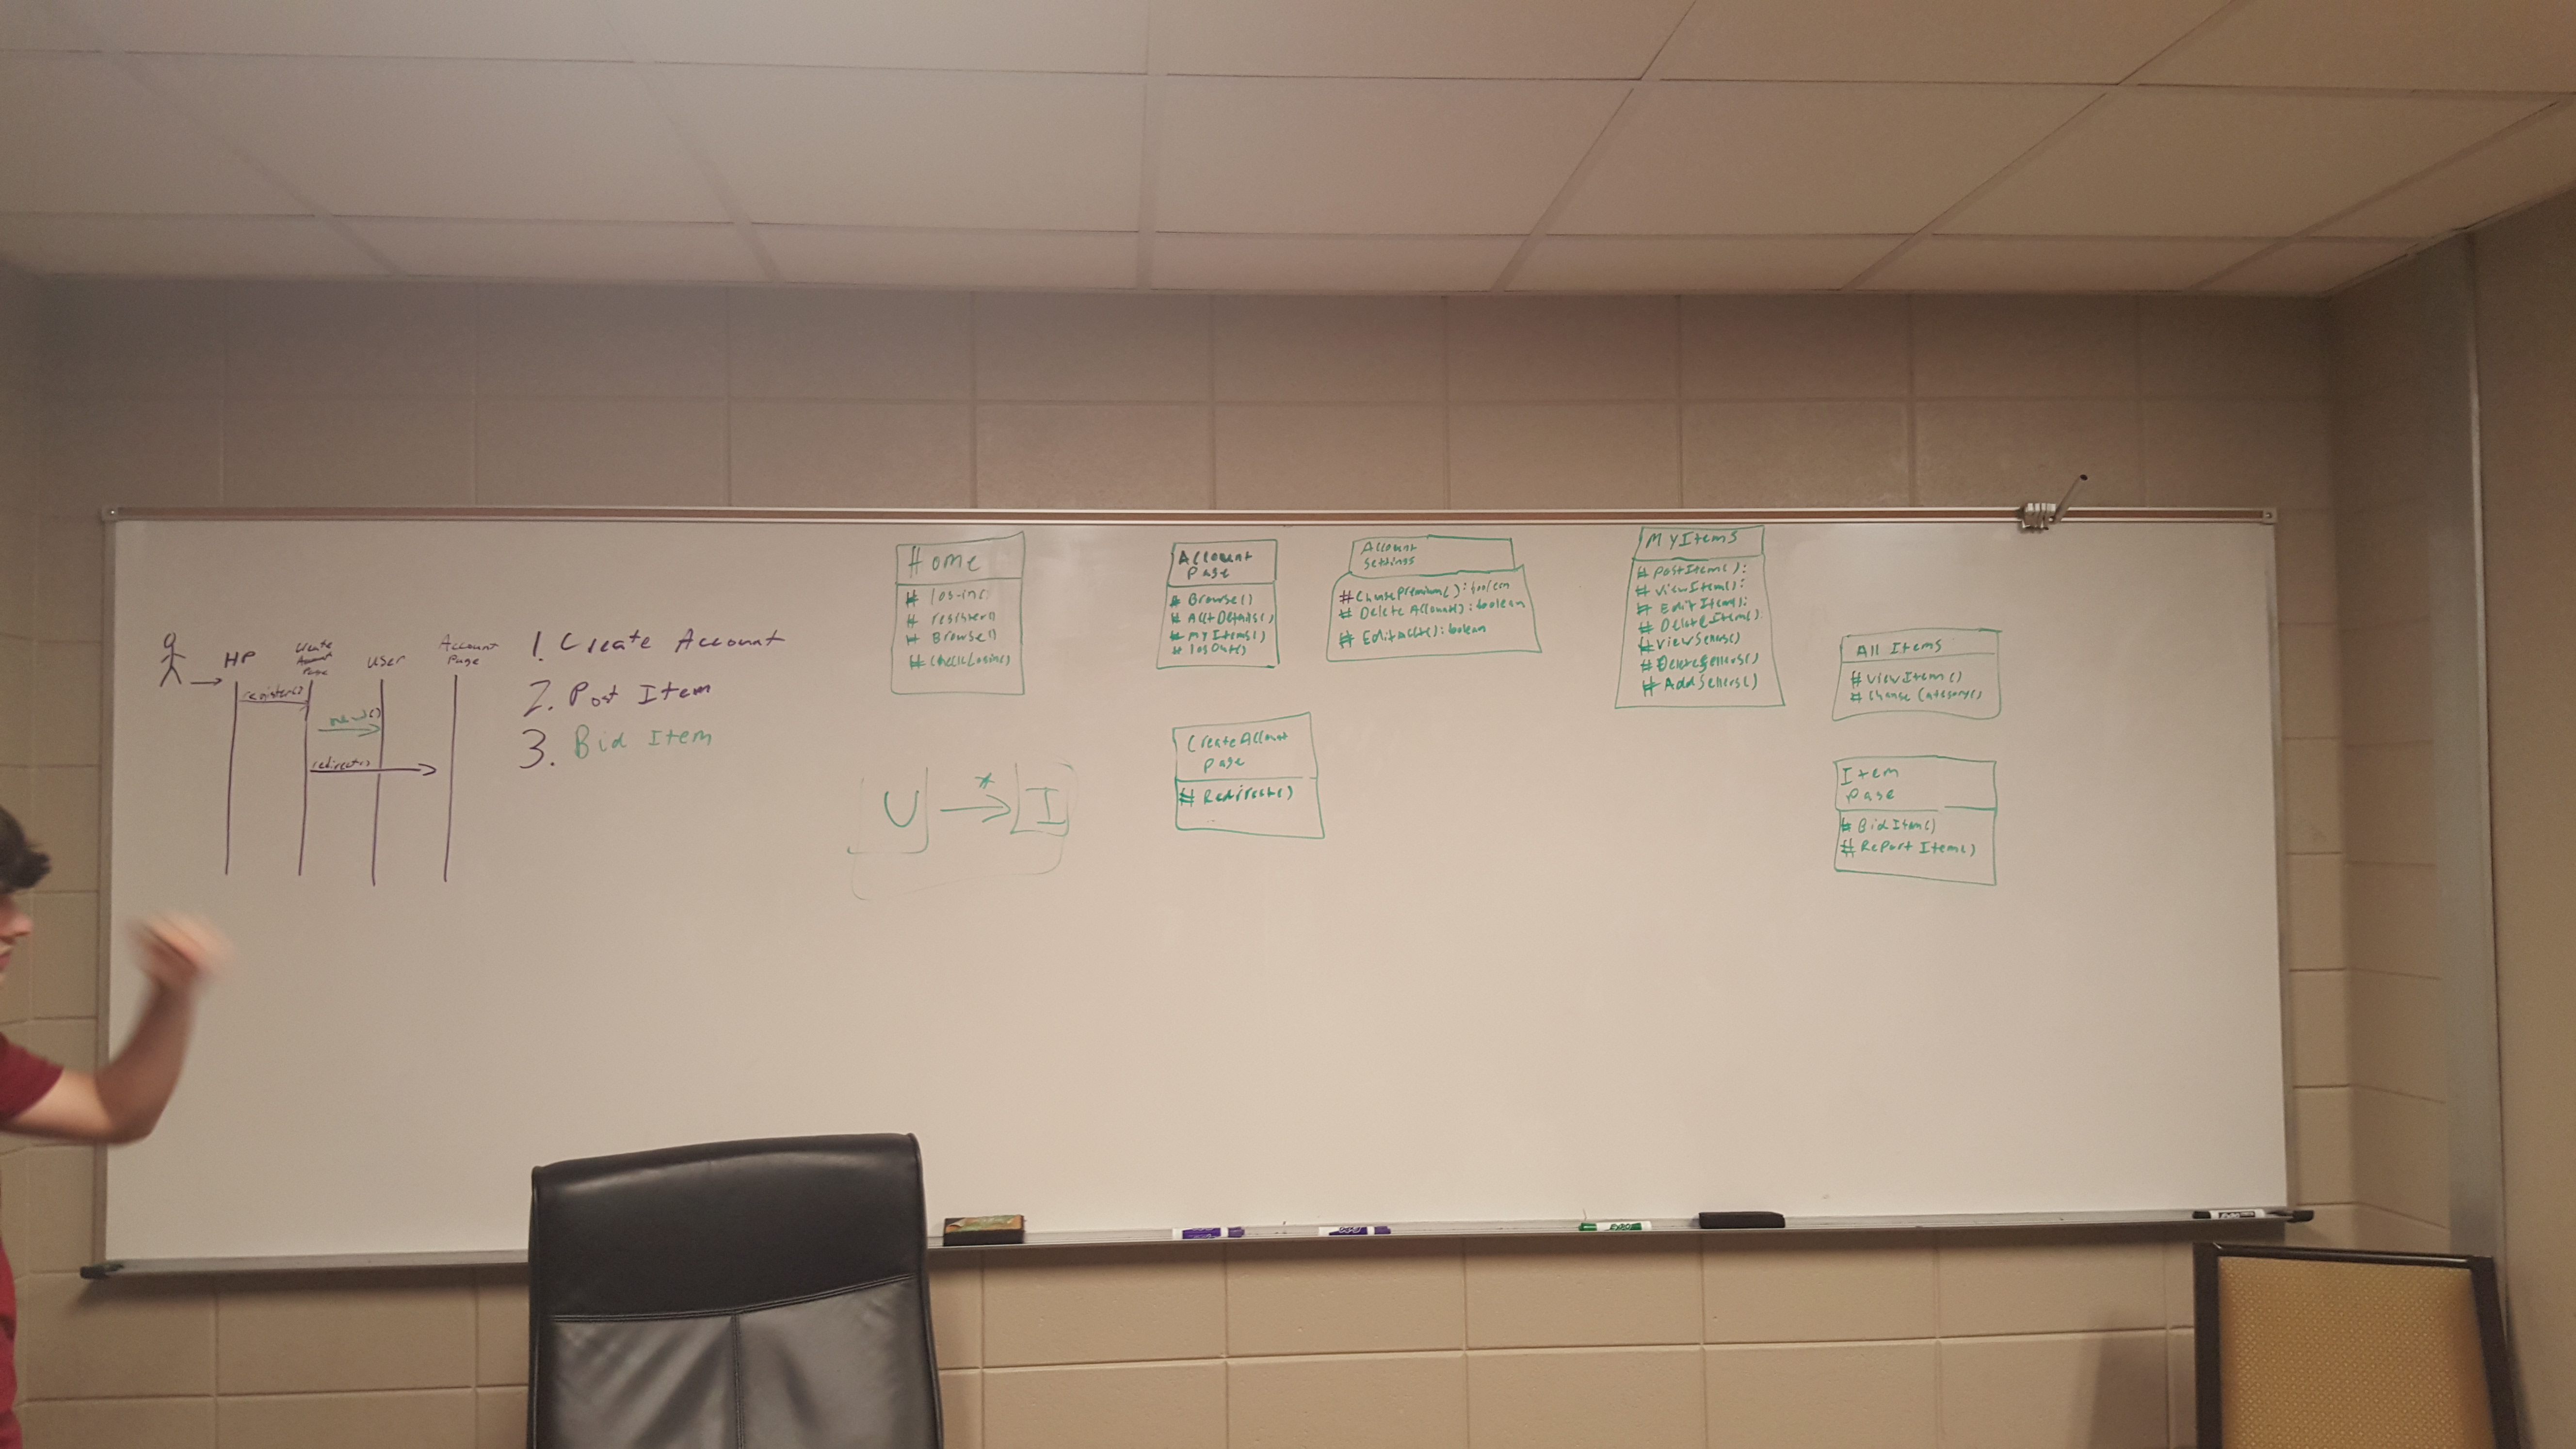 HP
Create
Account
Page
User
Account
Page
register()
new()
redirect()
1. Create Account
2. Post Item
3. Bid Item
Home
# log-in()
# register()
# Browse()
# checkLogin()
U * I
Account
Page
# Browse()
# AcctDetails()
# MyItems()
# logOut()
Account
Settings
#ChangePremium(): boolean
# Delete Account(): boolean
# EditAcct(): bolean
CreateAccount
Page
# Redirect()
MyItems
# postItem():
# viewItem():
# Edit Item():
# DeleteItem():
#viewSellers()
#DeleteSellers()
#AddSellers()
All Items
# viewItem()
# Change Category()
Item
Page
# BidItem()
# Report Item()
EXPO